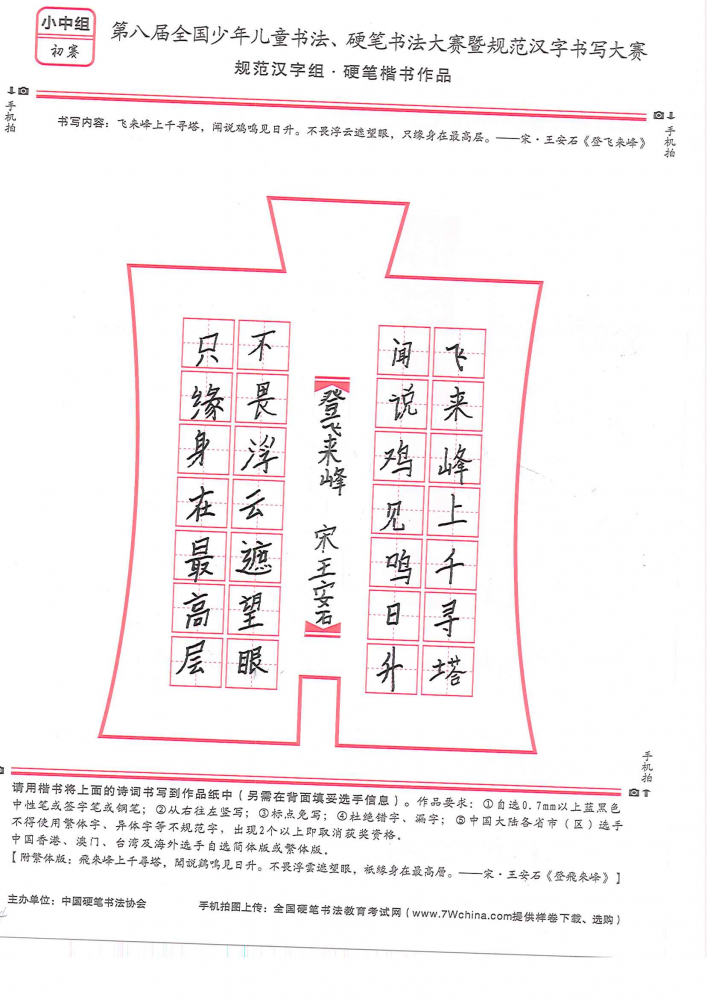 小中组
初赛
第八届全国少年儿童书法、硬笔书法大赛暨规范汉字书写大赛
规范汉字组·硬笔楷书作品
手机拍
手机拍
书写内容：飞来峰上千寻塔，闻说鸡鸣见日升。不畏浮云遮望眼，只缘身在最高层。——宋·王安石《登飞来峰》
飞来峰上千寻塔
闻说鸡见鸣日升
登飞来峰 宋·王安石
不畏浮云遮望眼
只缘身在最高层
手机拍
请用楷书将上面的诗词书写到作品纸中（另需在背面填妥选手信息）。作品要求：①自选0.7mm以上蓝黑色
中性笔或签字笔或钢笔；②从右往左竖写；③标点免写；④杜绝错字、漏字；⑤中国大陆各省市（区）选手
不得使用繁体字、异体字等不规范字，出现2个以上即取消获奖资格。
中国香港、澳门、台湾及海外选手自选简体版或繁体版。
【附繁体版：飛來峰上千尋塔，聞說鷄鳴見日升。不畏浮雲遮望眼，祇緣身在最高層。——宋·王安石《登飛來峰》】
主办单位：中国硬笔书法协会 手机拍图上传：全国硬笔书法教育考试网（www.7Wchina.com提供样卷下载、选购）